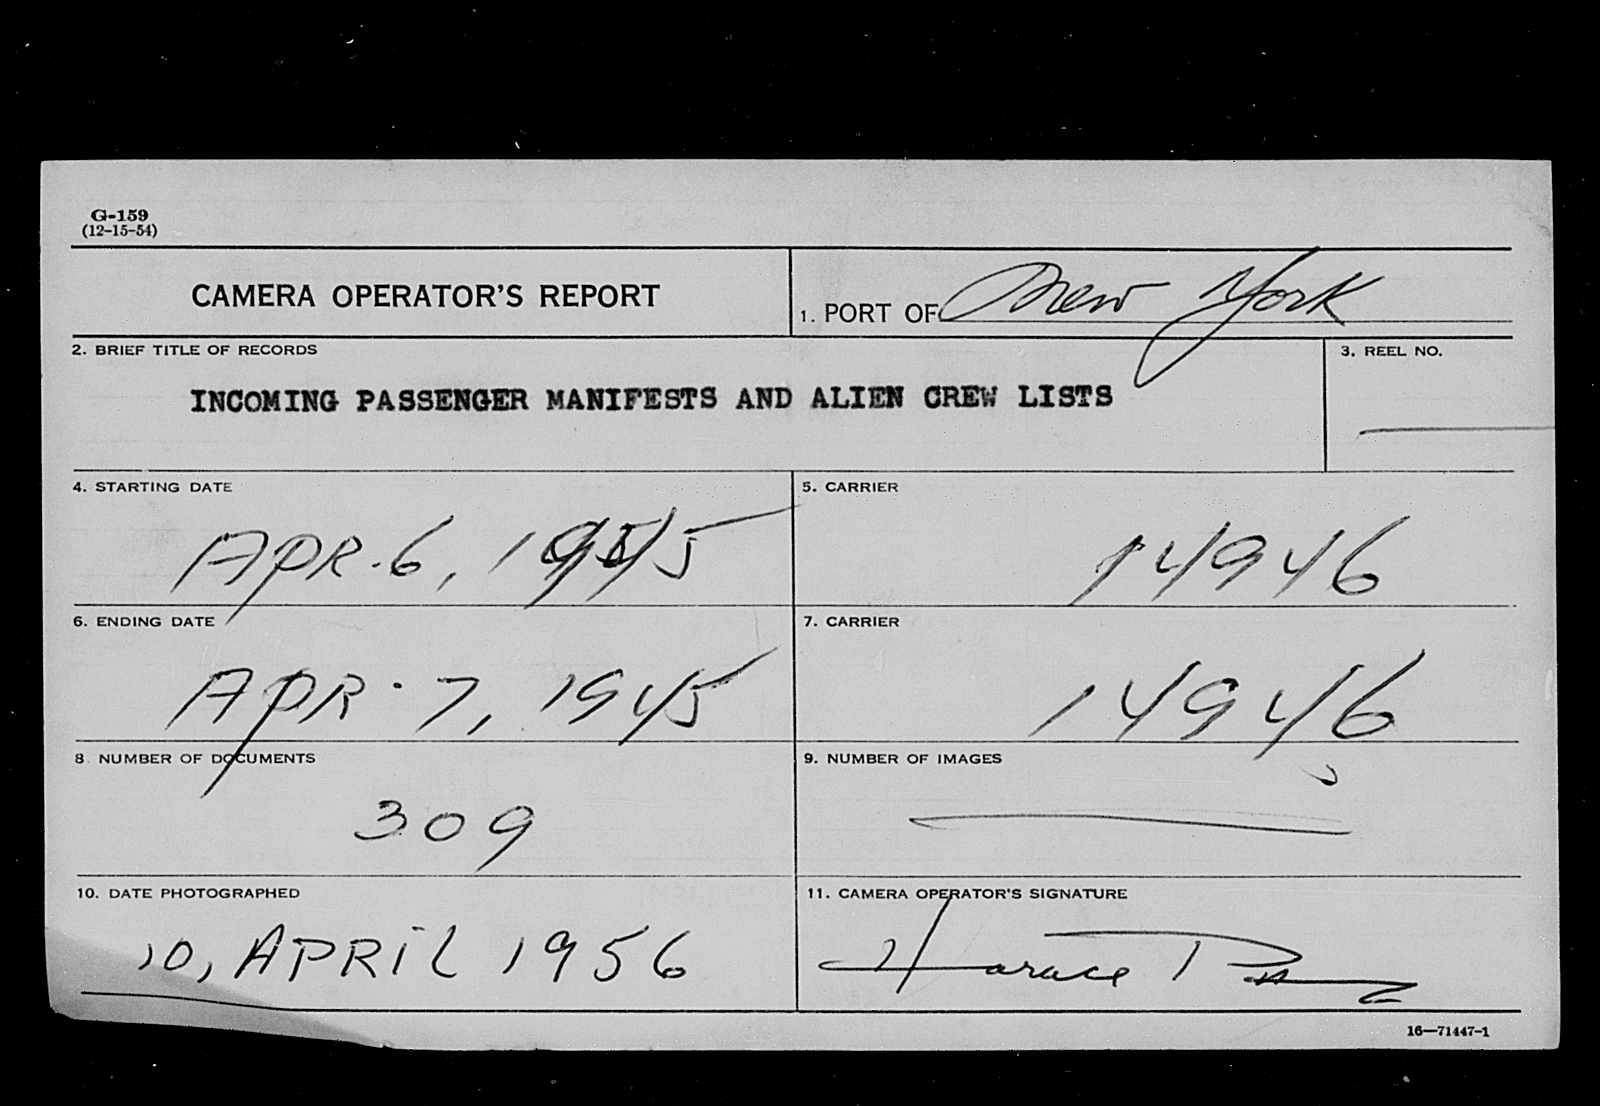 G-159
(12-15-54)
CAMERA OPERATOR'S REPORT
1. PORT OF New York
2. BRIEF TITLE OF RECORDS
3. REEL NO.
INCOMING PASSENGER MANIFESTS AND ALIEN CREW LISTS
4. STARTING DATE
5. CARRIER
APR. 6, 1945
14946
6. ENDING DATE
7. CARRIER
APR. 7, 1945
14946
8. NUMBER OF DOCUMENTS
9. NUMBER OF IMAGES
309
10. DATE PHOTOGRAPHED
11. CAMERA OPERATOR'S SIGNATURE
10, APRIL 1956
Horace
16—71447-1